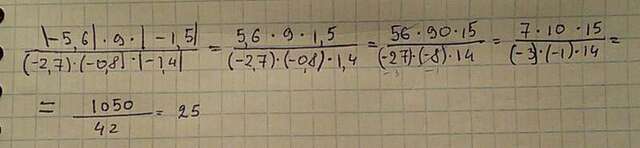 |-5,6| · 9 · |-1,5| / (-2,7) · (-0,8) · |-1,4| = 5,6 · 9 · 1,5 / (-2,7) · (-0,8) · 1,4 = 56 · 90 · 15 / (-27) · (-8) · 14 = 7 · 10 · 15 / (-3) · (-1) · 14 =
= 1050 / 42 = 25